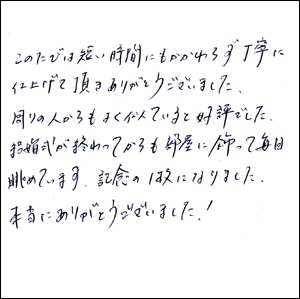 このたびは短い時間にもかかわらず丁寧に
仕上げて頂きありがとうございました。
周りの人からもよく似ていると好評でした。
結婚式が終わってからも部屋に飾って毎日
眺めています。記念の1枚になりました。
本当にありがとうございました!